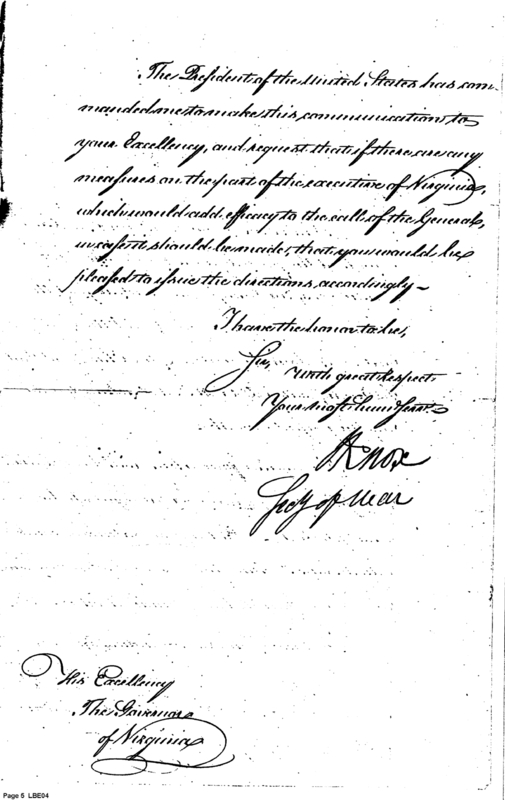 The President of the United States has com-
manded me to make this communication to
your Excellency, and request that if there are any
measures on the part of the executive of Virginia,
which would add efficacy to the calls of the General,
in case it should be made, that you would be
pleased to issue the directions accordingly—
I have the honor to be,
Sir,
With great respect
Your most Hum Servt.
HKnox
Secy of War
His Excellency
The Governor
of Virginia
Page 5 LBE04